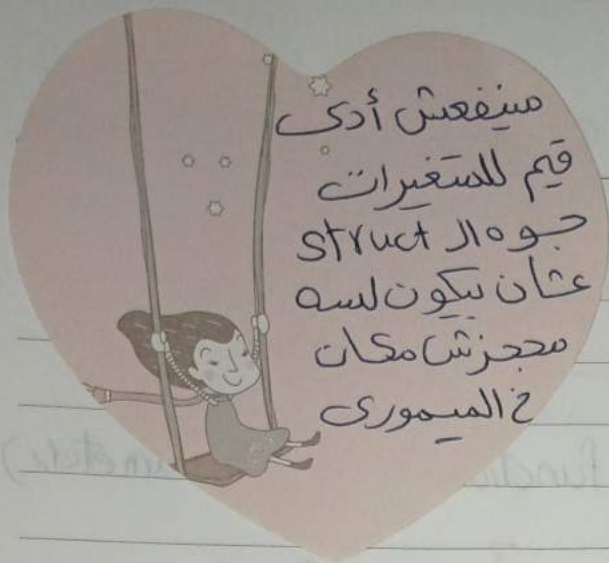 مينفعش أدى
قيم للمتغيرات
جوه ال struct
عشان بيكون لسه
محجزش مكان
في الميمورى